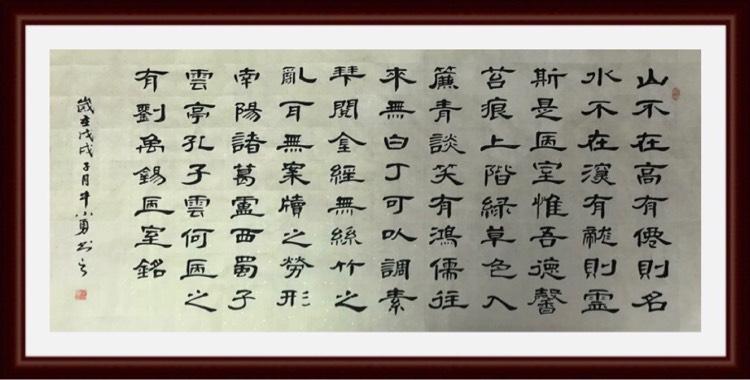 山不在高有僊則名
水不在深有龍則靈
斯是陋室惟吾德馨
苔痕上階綠草色入
簾青談笑有鴻儒往
來無白丁可以調素
琴閱金經無絲竹之
亂耳無案牘之勞形
南陽諸葛廬西蜀子
雲亭孔子雲何陋之
有劉禹錫陋室銘
歲在戊戌子月牛小勇书